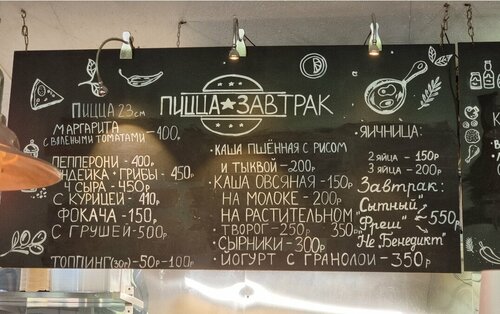 ПИЦЦА★ЗАВТРАК
ПИЦЦА 23см
МАРГАРИТА
С ВЯЛЕНЫМИ ТОМАТАМИ - 400₽
ПЕППЕРОНИ - 400₽
ИНДЕЙКА • ГРИБЫ - 450₽
4 СЫРА - 450₽
С КУРИЦЕЙ - 410₽
ФОКАЧА - 150₽
С ГРУШЕЙ - 500₽
ТОППИНГ (30г) - 50-100₽
• КАША ПШЁННАЯ С РИСОМ
И ТЫКВОЙ - 200₽
• КАША ОВСЯНАЯ - 150₽
НА МОЛОКЕ - 200₽
НА РАСТИТЕЛЬНОМ
• ТВОРОГ - 250₽ 350₽
• СЫРНИКИ - 300₽
• ЙОГУРТ С ГРАНОЛОЙ - 350₽
ЯИЧНИЦА:
2 ЯЙЦА - 150₽
3 ЯЙЦА - 200₽
Завтрак:
"Сытный"
"Фреш" - 550₽
"Не Бенедикт"